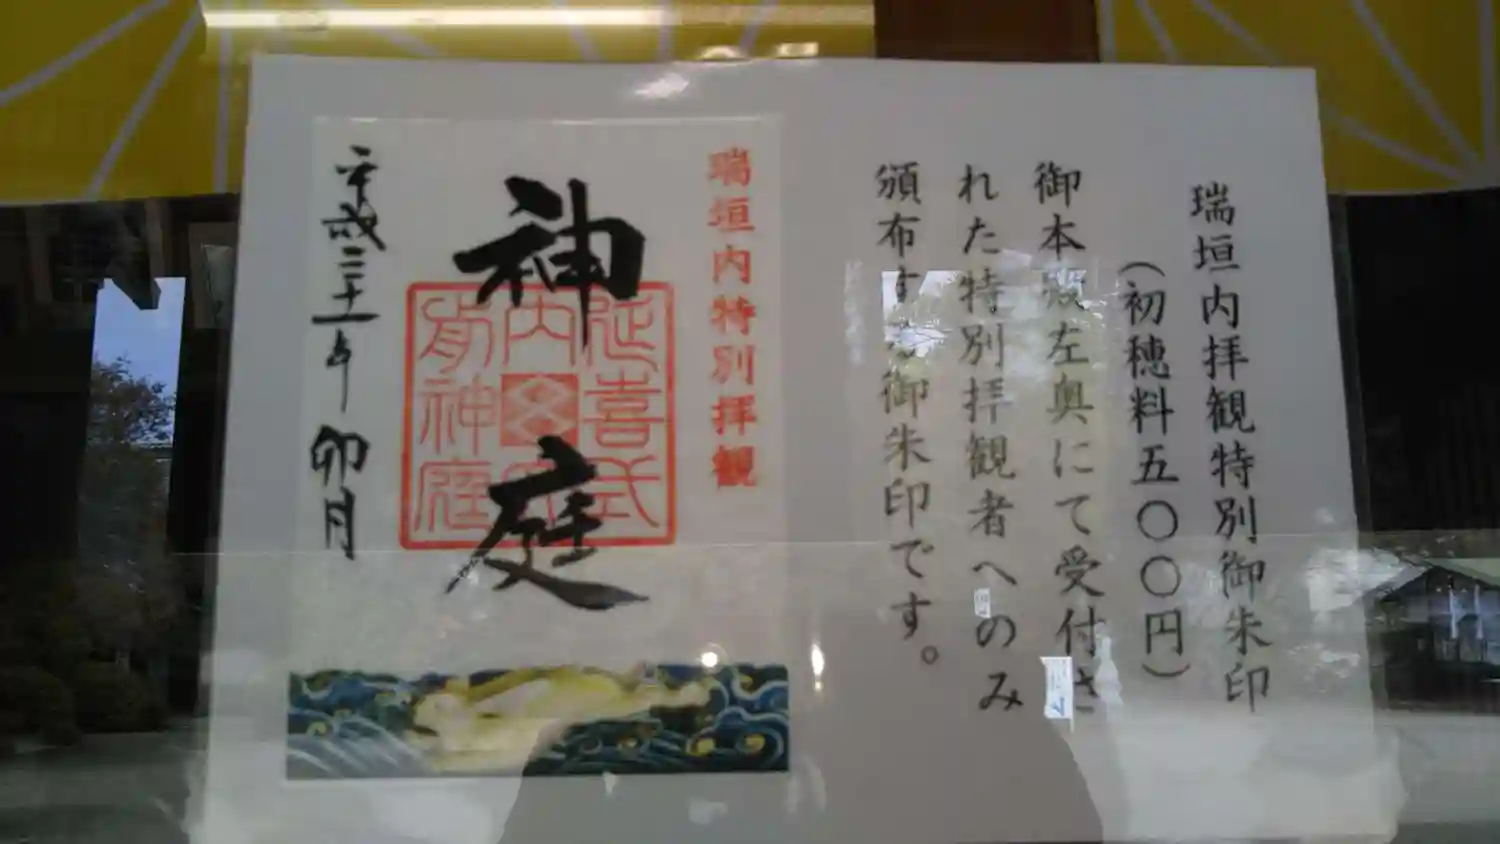 瑞垣内拝観特別御朱印
（初穂料五〇〇円）
御本殿左奥にて受付さ
れた特別拝観者へのみ
頒布する御朱印です。
瑞垣内特別拝観
神庭
延喜式
内
神庭
平成三十一年
卯月